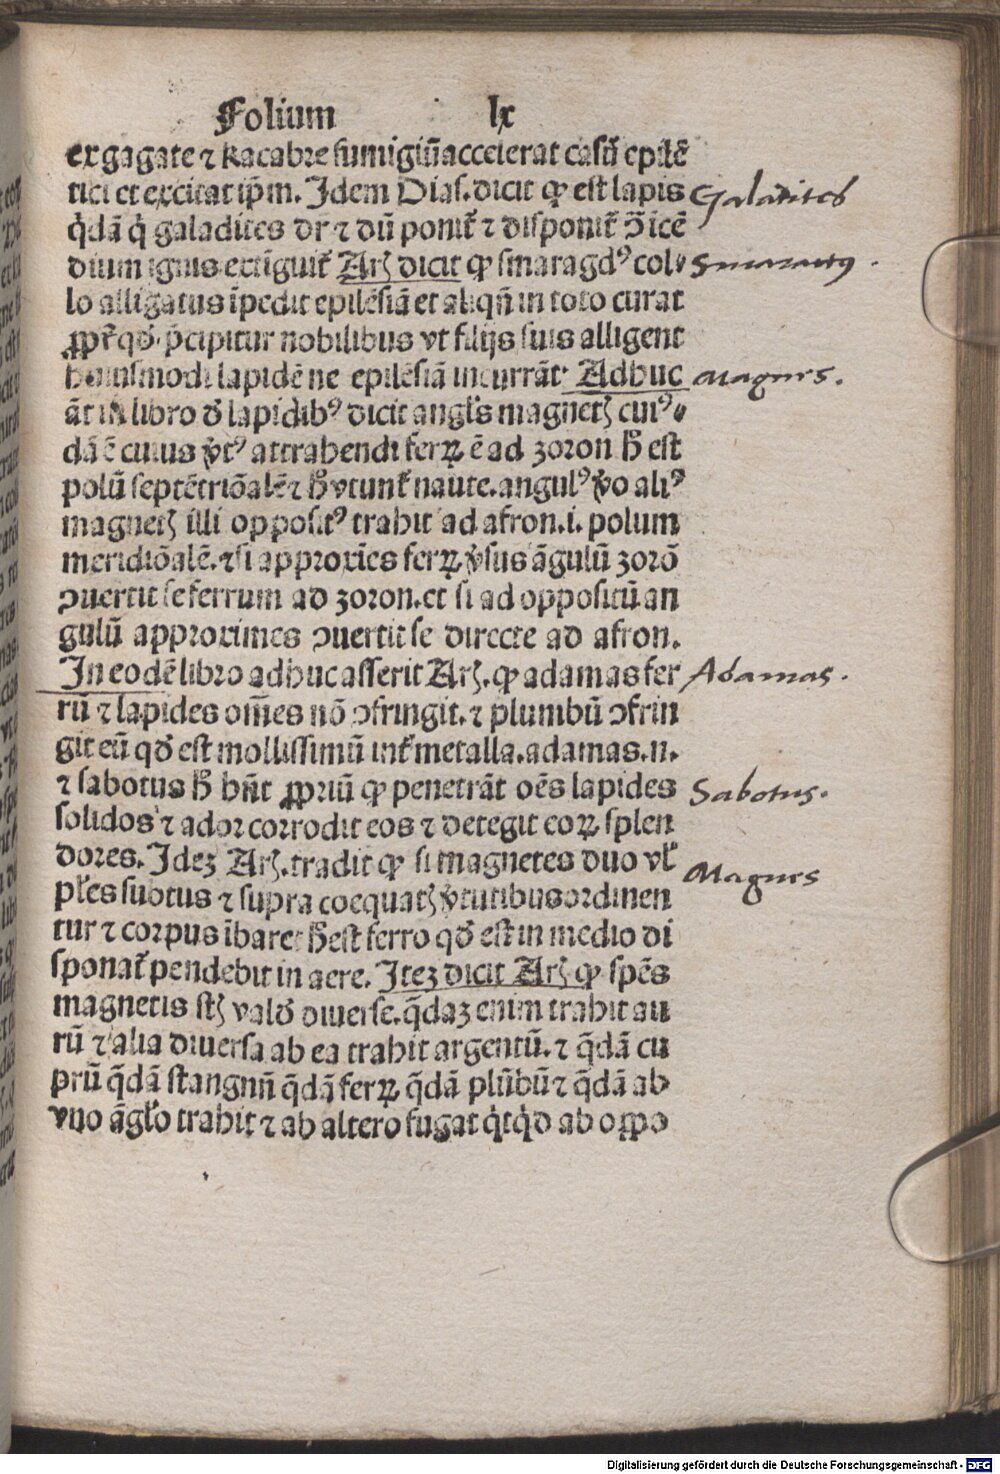 Folium lx
ex gagate ⁊ kacabre fumigiũ accelerat casũ epilẽ
tici et excitat ip̃m. Idem Dias. dicit ꝙ est lapis
q̇dã q̇ galadites dr̃ ⁊ dũ ponit᷑ ⁊ disponit᷑ ↄ̃ icẽ
Galatites
dium ignis extiguit᷑ Arꝭ dicit ꝙ smaragdꝰ col
Smaractꝰ.
lo alligatus ĩpedit epilẽsiã et aliqñ in toto curat
ꝓpt᷑ qđ p̃cipitur nobilibus vt filijs suis alligent
huiusmodi lapidẽ ne epilẽsiã incurrãt Adhuc
Magnes.
ãt in libro đ lapidibꝰ dicit angl̃s magnetꝭ cuiꝰ
dã ẽ cuius v̓tꝰ attrahendi ferꝝ ẽ ad zoron h̃ est
polũ septẽtriõalẽ ⁊ h̃ vtunt᷑ naute. angulꝰ v̓o aliꝰ
magnetꝭ illi oppositꝰ trahit ad afron .i. polum
meridiõalẽ. ⁊ si approxĩes ferꝝ v̓sus ãgulũ zorõ
ↄuertit se ferrum ad zoron. et si ad oppositũ an
gulũ approximes ↄuertit se directe ad afron.
In eodẽ libro adhuc asserit Arꝭ. ꝙ adamas fer
Adamas.
rũ ⁊ lapides om̃es nõ ↄfringit. ⁊ plumbũ ↄfrin
git eũ qđ est mollissimũ int᷑ metalla. adamas .n.
⁊ sabotus h̃ hñt ꝓpriũ ꝙ penetrãt oẽs lapides
Sabotus.
solidos ⁊ ador corrodit eos ⁊ detegit eoꝝ splen
dores. Idez Arꝭ. tradit ꝙ si magnetes duo vl᷑
Magnes
pl̃es subtus ⁊ supra coequatꝭ v̓tutibus ordinen
tur ⁊ corpus ĩhare h̃ est ferro qđ est in medio di
sponat᷑ pendebit in aere. Itez dicit Arꝭ ꝙ spẽs
magnetis stꝭ valđ diuerse. q̃daz enim trahit au
rũ ⁊ alia diuersa ab ea trahit argentũ. ⁊ q̃dã cu
prũ q̃dã stangnũ q̃dã ferꝝ q̃dã plũbũ ⁊ q̃dã ab
vno ãgl᷑o trahit ⁊ ab altero fugat q̇tq̇d ab oppo
Digitalisierung gefördert durch die Deutsche Forschungsgemeinschaft - DFG